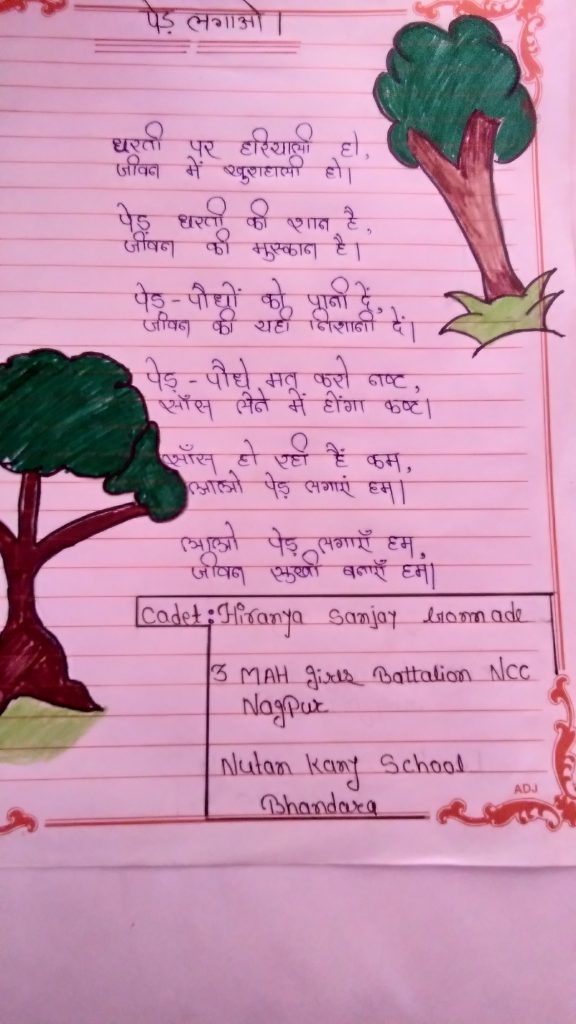 पेड़ लगाओ।
धरती पर हरियाली हो,
जीवन में खुशहाली हो।
पेड़ धरती की शान है,
जीवन की मुस्कान है।
पेड़-पौधों को पानी दें,
जीवन की यही निशानी दें।
पेड़-पौधे मत करो नष्ट,
साँस लेने में होंगा कष्ट।
साँस हो रही हैं कम,
आओ पेड़ लगाएं हम।
आओ पेड़ लगाएँ हम,
जीवन सुखी बनाएँ हम।
Cadet: Hiranya Sanjay
3 MAH girls Battalion NCC
Nagpur
Nutan Kany School
Bhandara
ADJ